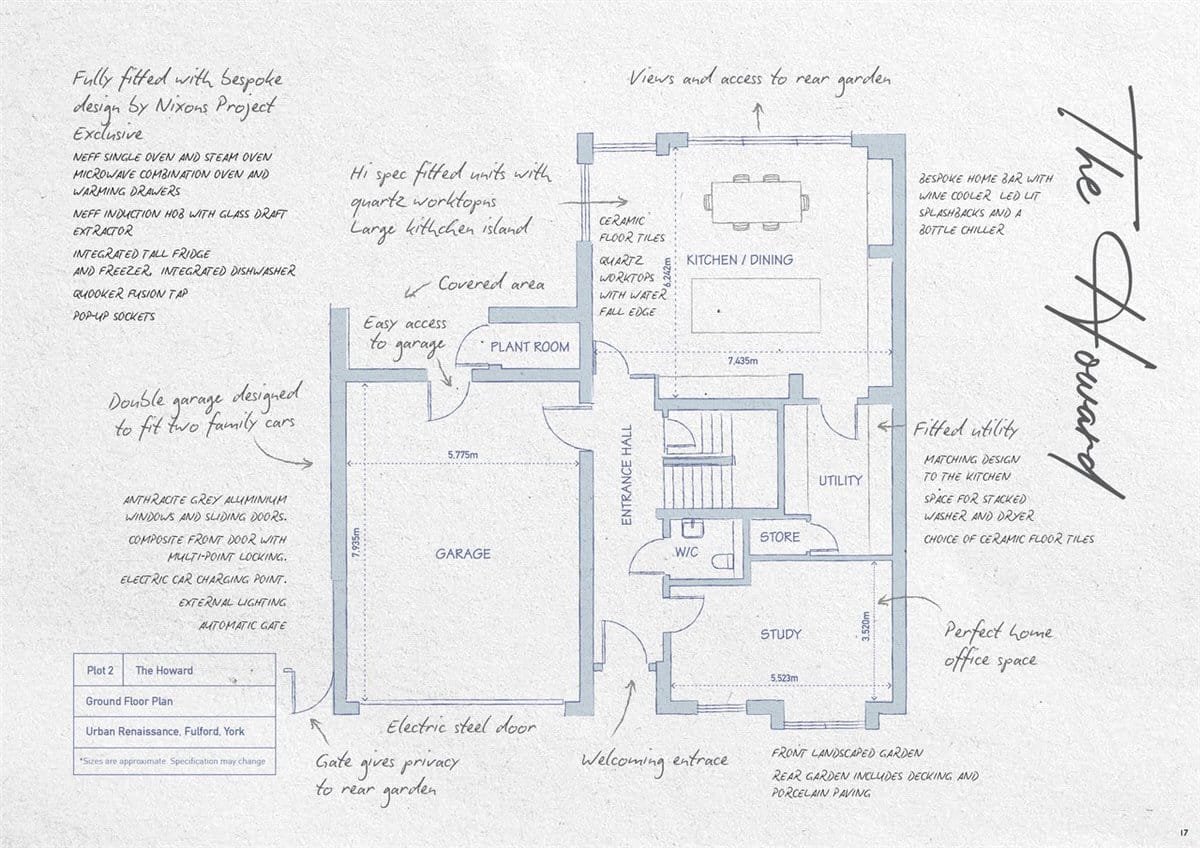 Fully fitted with bespoke
design by Nixons Project
Exclusive
NEFF SINGLE OVEN AND STEAM OVEN
MICROWAVE COMBINATION OVEN AND
WARMING DRAWERS
NEFF INDUCTION HOB WITH GLASS DRAFT
EXTRACTOR
INTEGRATED TALL FRIDGE
AND FREEZER, INTEGRATED DISHWASHER
QUOOKER FUSION TAP
POP-UP SOCKETS
Views and access to rear garden
Hi spec fitted units with
quartz worktopns
Large kithchen island
CERAMIC
FLOOR TILES
QUARTZ
WORKTOPS
WITH WATER
FALL EDGE
6.242m
KITCHEN / DINING
7.435m
BESPOKE HOME BAR WITH
WINE COOLER LED LIT
SPLASHBACKS AND A
BOTTLE CHILLER
The Howard
Covered area
Easy access
to garage
PLANT ROOM
Double garage designed
to fit two family cars
5.775m
7.935m
GARAGE
ENTRANCE HALL
UTILITY
STORE
W/C
STUDY
3.520m
5.523m
Fitted utility
MATCHING DESIGN
TO THE KITCHEN
SPACE FOR STACKED
WASHER AND DRYER
CHOICE OF CERAMIC FLOOR TILES
ANTHRACITE GREY ALUMINIUM
WINDOWS AND SLIDING DOORS.
COMPOSITE FRONT DOOR WITH
MULTI-POINT LOCKING.
ELECTRIC CAR CHARGING POINT.
EXTERNAL LIGHTING
AUTOMATIC GATE
Perfect home
office space
Plot 2 The Howard
Ground Floor Plan
Urban Renaissance, Fulford, York
*Sizes are approximate. Specification may change
Electric steel door
Gate gives privacy
to rear garden
Welcoming entrace
FRONT LANDSCAPED GARDEN
REAR GARDEN INCLUDES DECKING AND
PORCELAIN PAVING
17